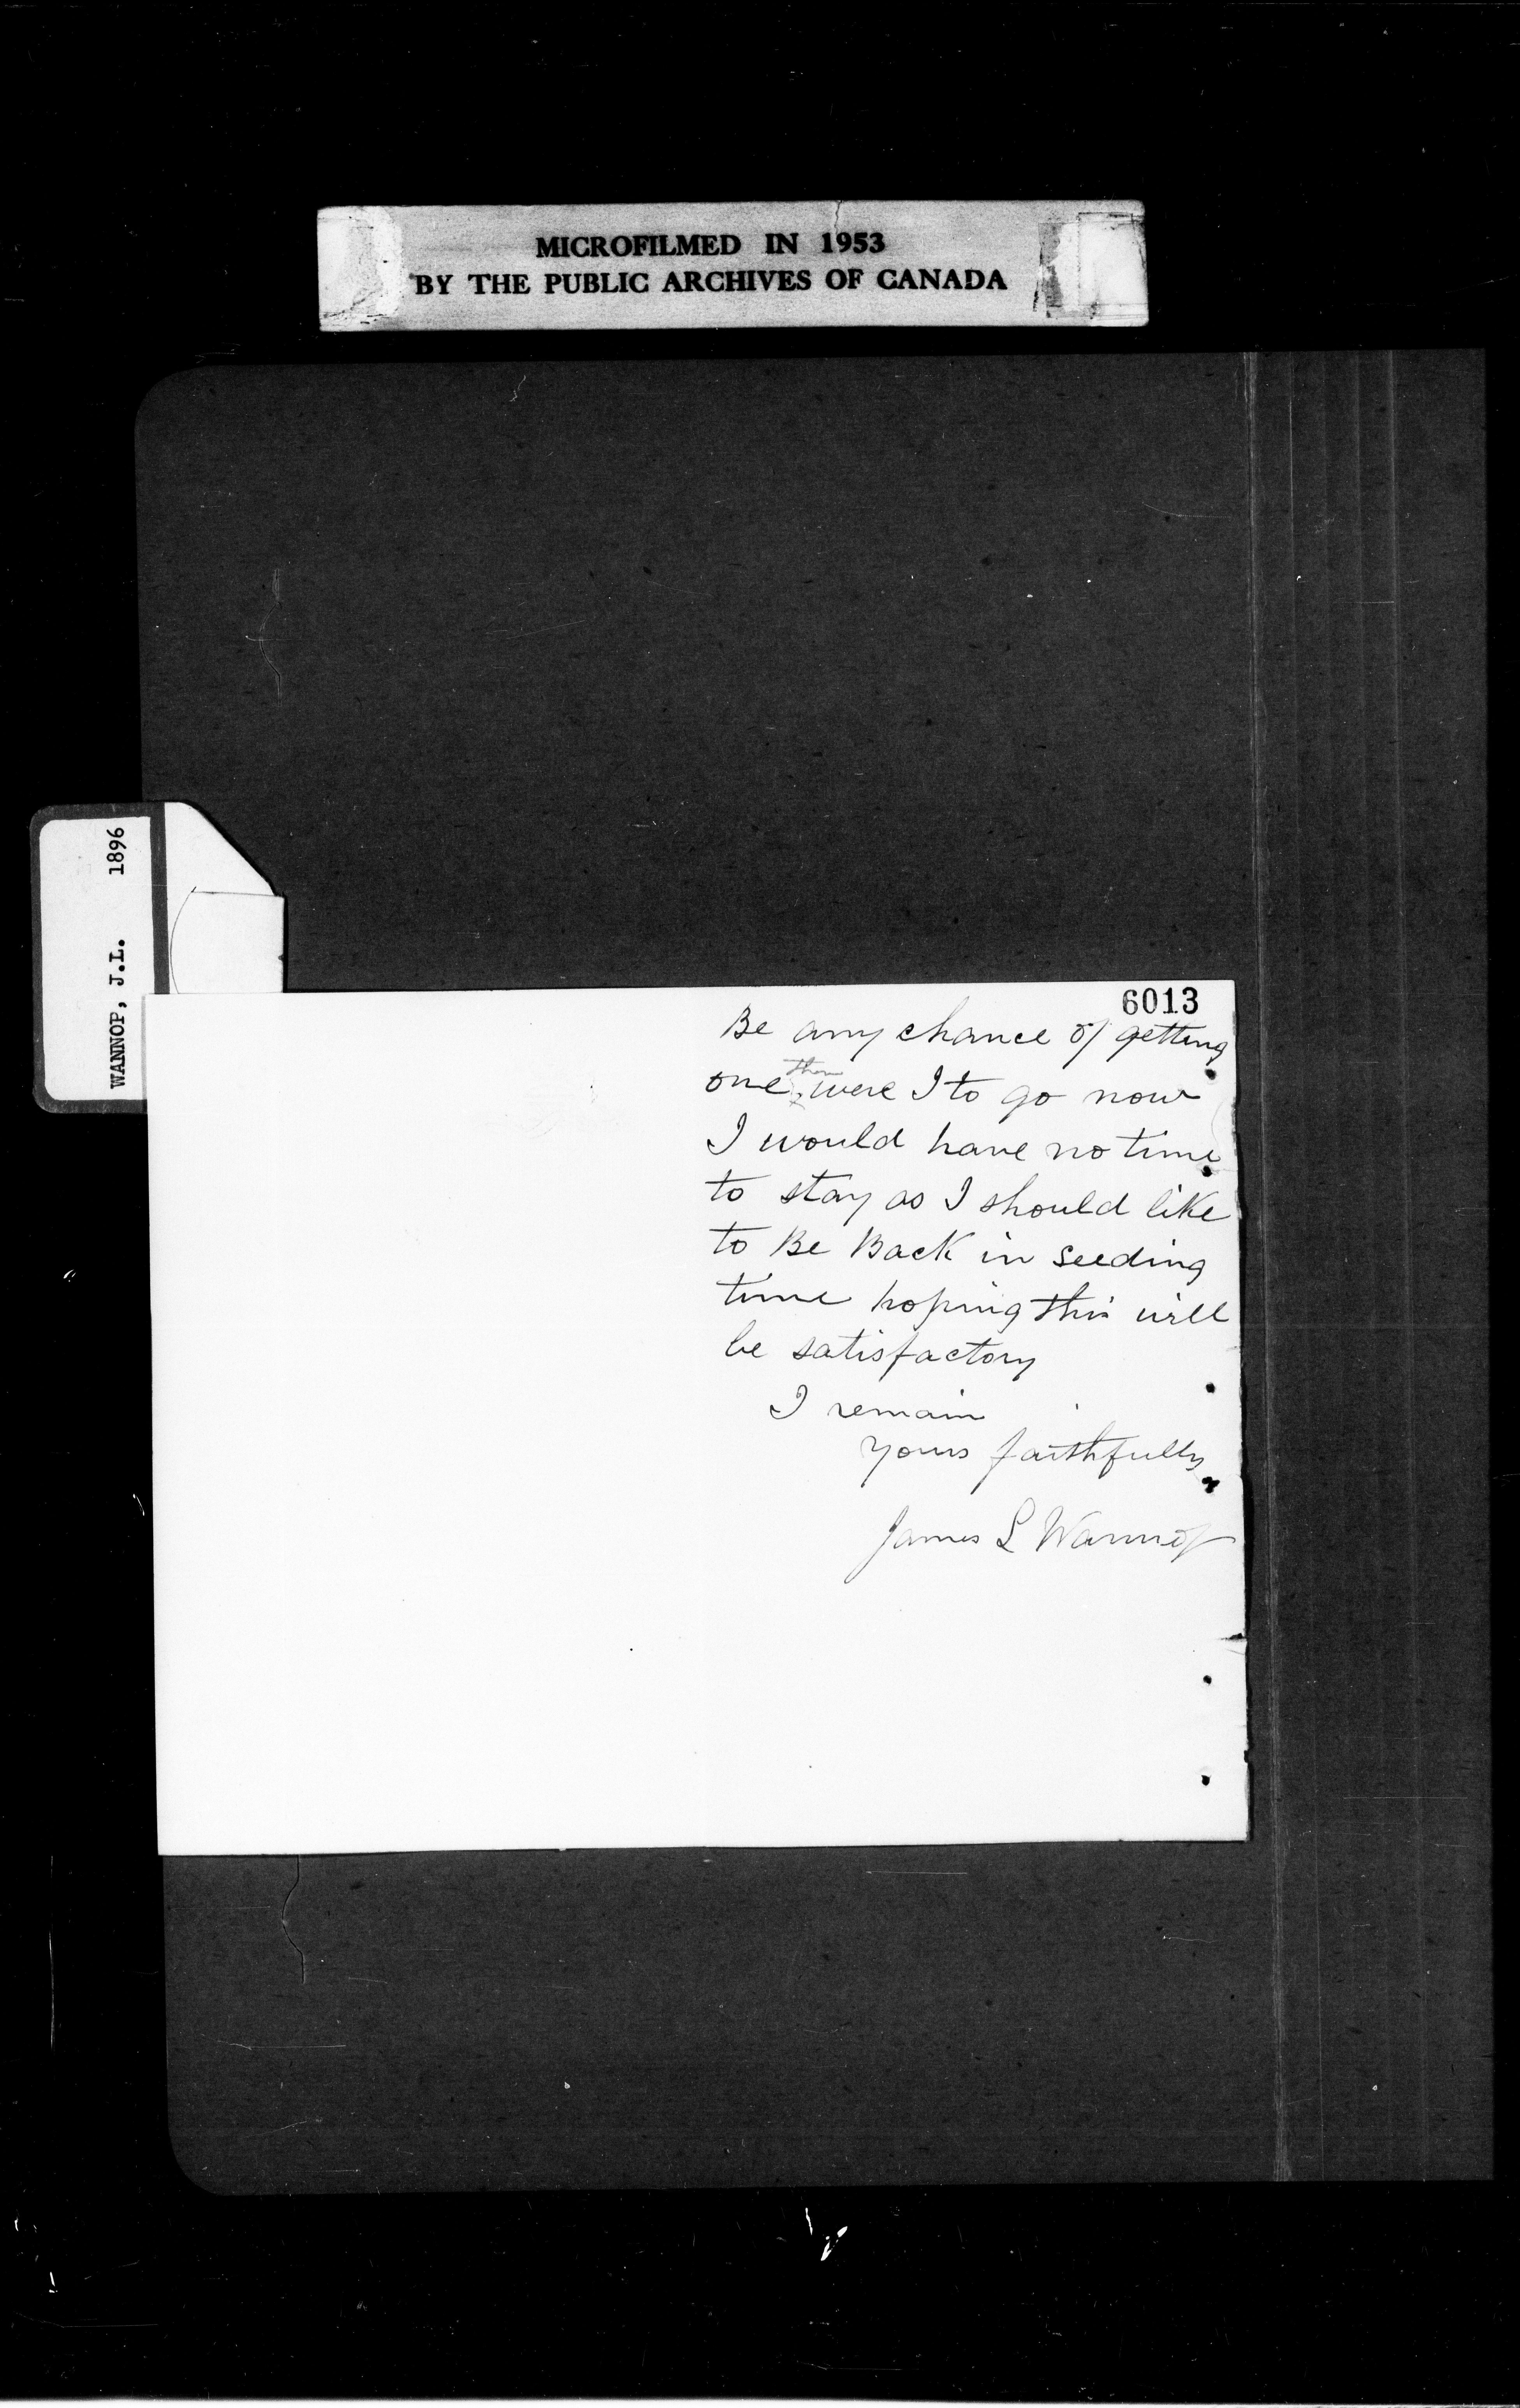 MICROFILMED IN 1953
BY THE PUBLIC ARCHIVES OF CANADA
WANNOP, J.L. 1896
6013
Be any chance of getting
one then were I to go now
I would have no time
to stay as I should like
to Be Back in seeding
time hoping this will
be satisfactory
I remain
yours faithfully
James L Wannop